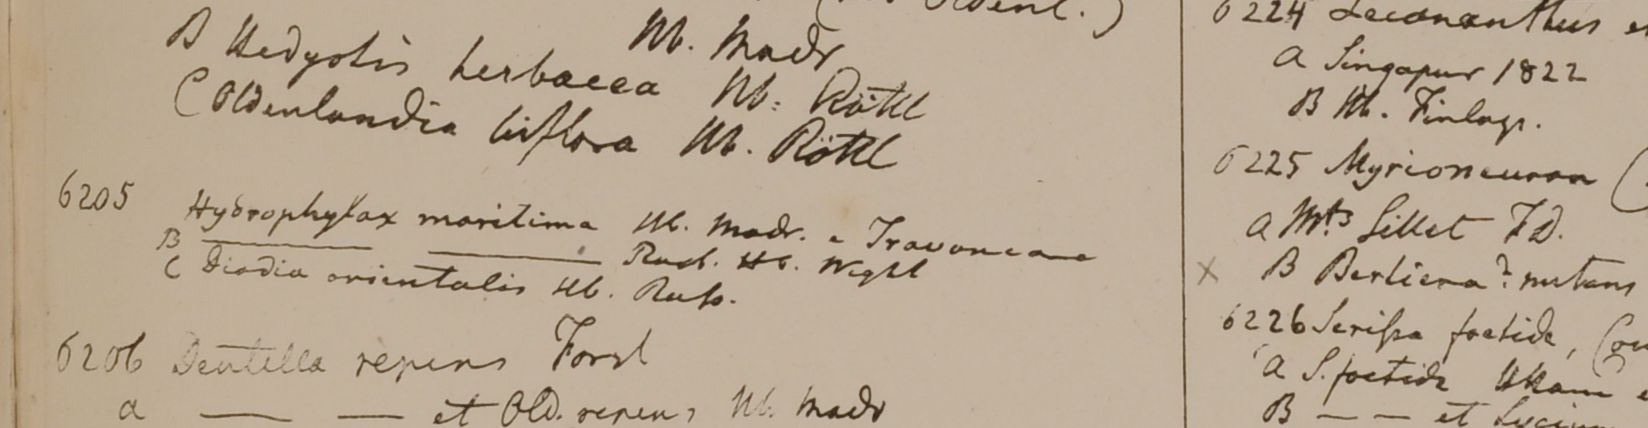 Hb. Madr
B Hedyotis herbacea Hb. Röttl
C Oldenlandia biflora Hb. Röttl
6205 Hydrophylax maritima Hb. Madr. e Travancore
B —— —— Hb. Wight
C Diodia orientalis Hb. Russ.
6206 Dentella repens Forst
a — — et Old. repens Hb. Madr
6224
a Singapur 1822
B Hb. Finlays.
6225 Myrioneuron (
a Mts Sillet FD.
x B Bertiera? nutans
6226 Serissa foetida,
a S. foetida
B — — et